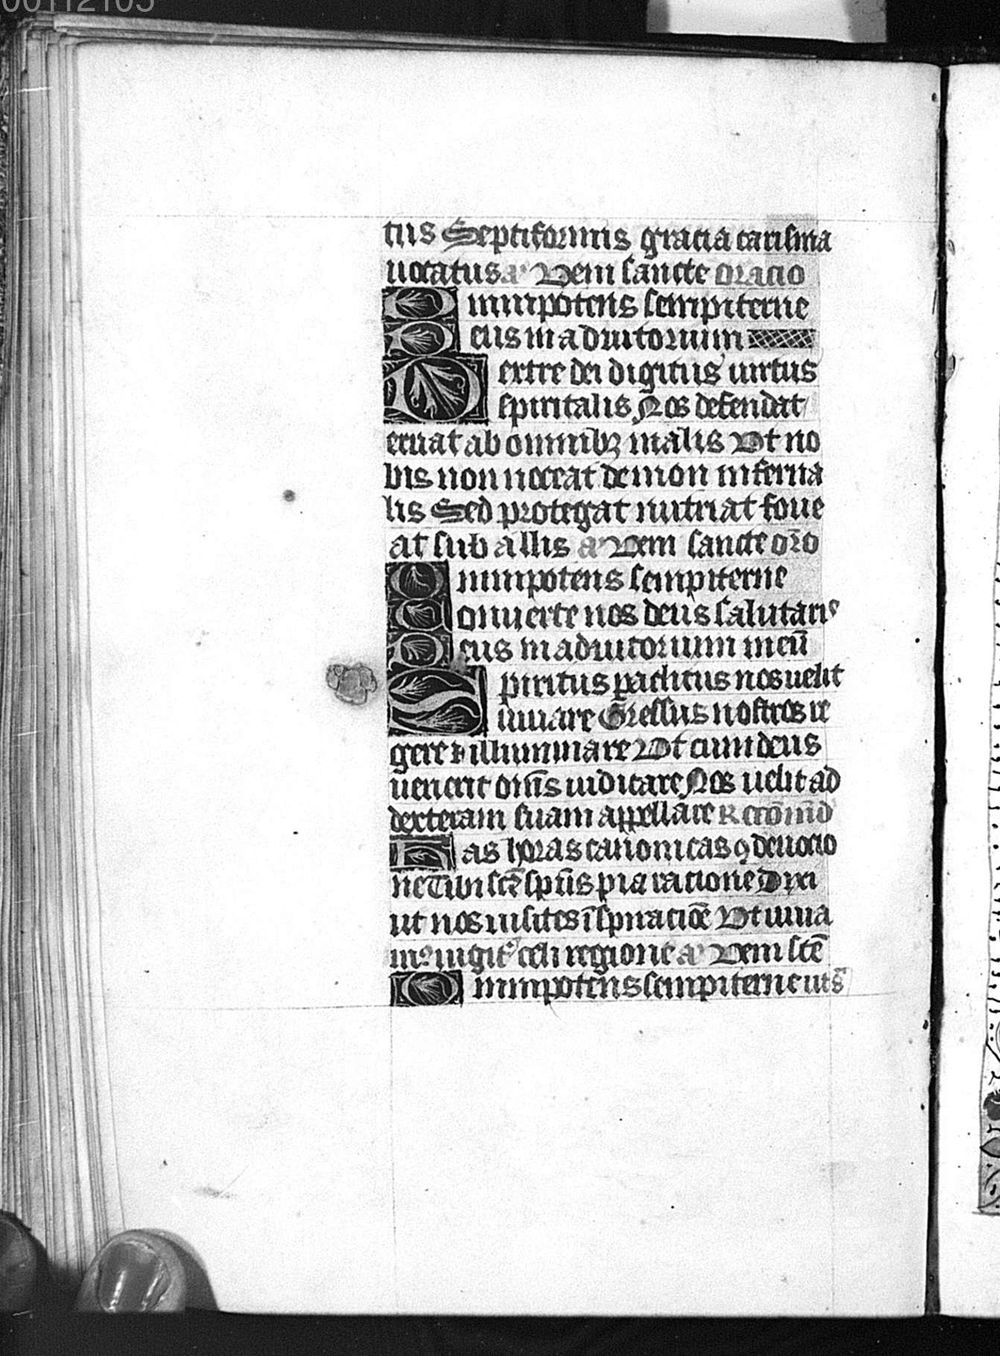 00112103
tus Septiformis gracia carisma
vocatus a Veni sancte oracio
Omnipotens sempiterne
Deus in adiutorium
Dextre dei digitus virtus
spiritalis Nos defendat
eruat ab omnibꝫ malis Vt no
bis non noceat demon inferna
lis Sed protegat nutriat foue
at sub allis a Veni sancte oro̅
Omnipotens sempiterne
Conuerte nos deus salutaris
Deus in adiutorium meu̅
Spiritus paclitus nos uelit
iuuare Gressus nostros re
gere ⁊ illuminare Vt cum deus
uenerit om̅s iudicare Nos uelit ad
dexteram suam appellare
Has horas canonicas ꝯ deuocio
ne Tibi sc̅e sp̅us pia racione Dixi
ut nos uisites i̅spiracio̅e Vt uiua
celi regione a Veni sc̅e
Omnipotens sempiterne uts̅